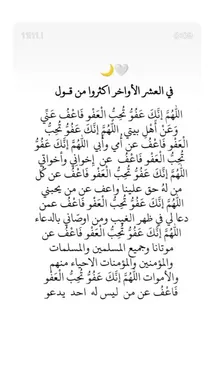 في العشر الأواخر اكثروا من قـول
اللَّهُمَّ إِنَّكَ عَفُوٌّ تُحِبُّ الْعَفْوَ فَاعْفُ عَنِّي
وَعَنْ أَهْلِ بيتي اللَّهُمَّ إِنَّكَ عَفُوٌّ تُحِبُّ
الْعَفْوَ فَاعْفُ عَن أُمي وأبي اللَّهُمَّ إِنَّكَ عَفُوٌّ
تُحِبُّ الْعَفْوَ فَاعْفُ عن إخواني وأخواتي
اللَّهُمَّ إِنَّكَ عَفُوٌّ تُحِبُّ الْعَفْوَ فَاعْفُ عن كُل
من لهُ حق علينا واعف عن من يحبني
اللَّهُمَّ إِنَّكَ عَفُوٌّ تُحِبُّ الْعَفْوَ فَاعْفُ عمن
دعا لي في ظهر الغيب ومن اوصاني بالدعاء
اللَّهُمَّ إِنَّكَ عَفُوٌّ تُحِبُّ الْعَفْوَ فَاعْفُ عن
موتانا وجميع المسلمين والمسلمات
والمؤمنين والمؤمنات الاحياء منهم
والأموات اللَّهُمَّ إِنَّكَ عَفُوٌّ تُحِبُّ الْعَفْوَ
فَاعْفُ عن من ليس له احد يدعو